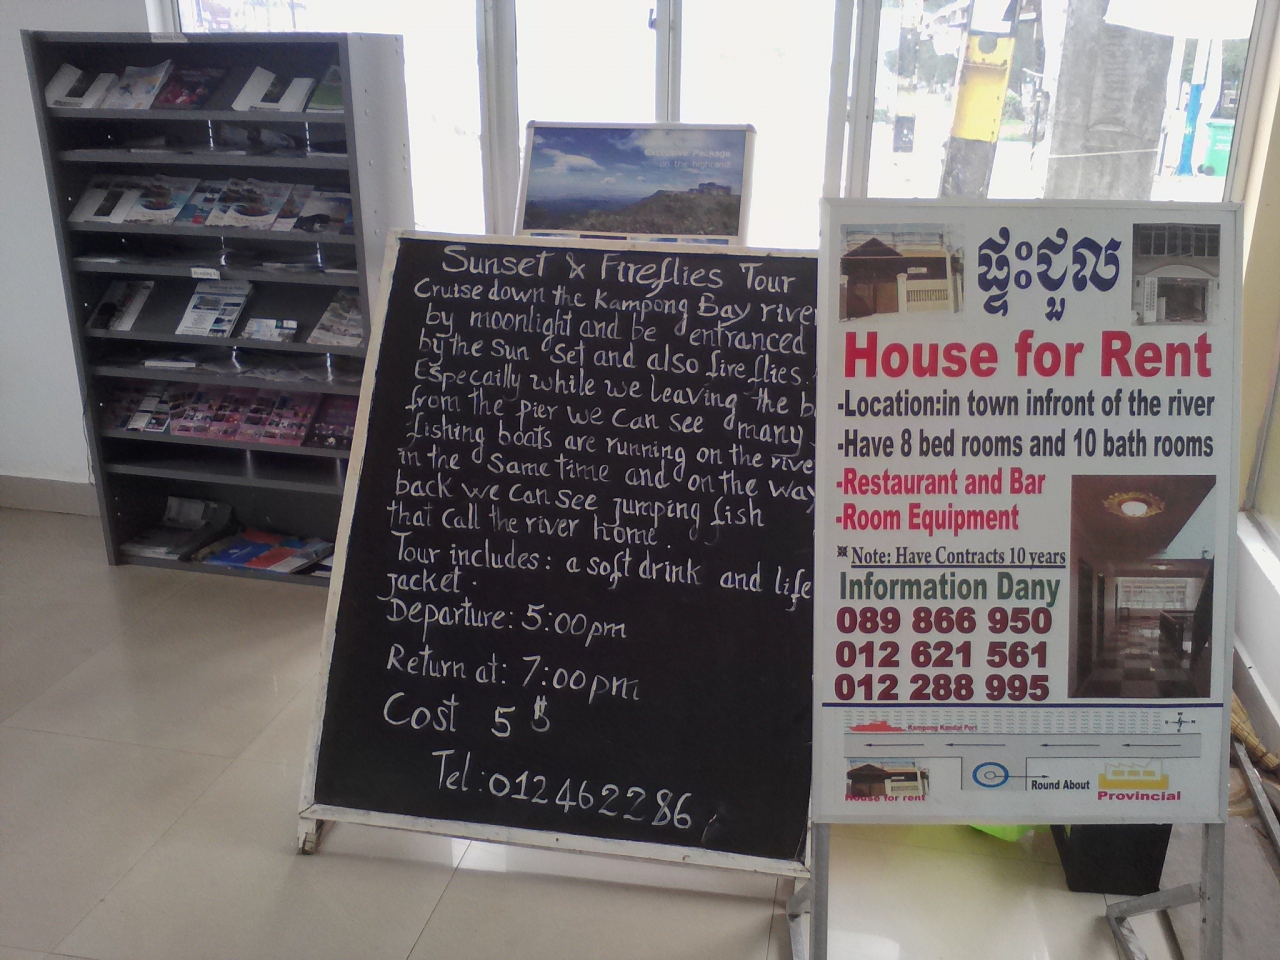 Exclusive Package
on the highland
Sunset & Fireflies Tour
Cruise down the Kampong Bay river
by moonlight and be entranced
by the sun set and also fireflies.
Especailly while we leaving the b
from the pier we can see many
fishing boats are running on the rive
in the same time and on the way
back we can see jumping fish
that call the river home.
Tour includes: a soft drink and life
jacket.
Departure: 5:00pm
Return at: 7:00pm
Cost 5$
Tel: 012462286
ផ្ទះជួល
House for Rent
-Location:in town infront of the river
-Have 8 bed rooms and 10 bath rooms
-Restaurant and Bar
-Room Equipment
※ Note: Have Contracts 10 years
Information Dany
089 866 950
012 621 561
012 288 995
Kampong Kandal Port
House for rent
Round About
Provincial